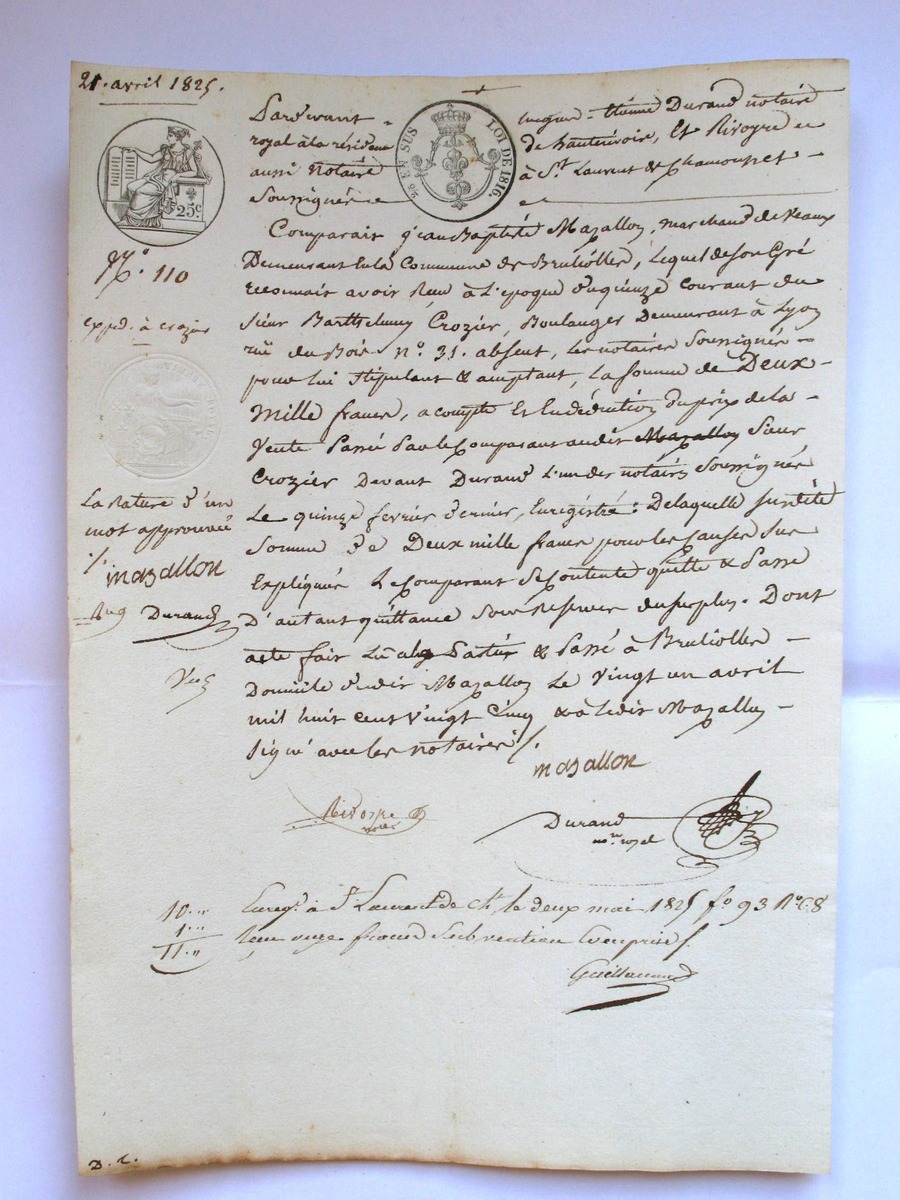 21. avril 1825.
Pardevant - Jacques - Etienne Durand notaire
royal à la résidence de hauterivoire, Et Rivoyre
aussi Notaire à St. Laurent de Chamousset -
Soussignés
2/10 EN SUS LOI DE 1816.
25c.
No. 110
Comparait jean Baptiste Mazallon, marchand de Veaux
Demeurant en la Commune de Brullioller, Lequel de son Gré
reconnait avoir Reçu à L'epoque du quinze courant du
Sieur Barthelemy Crozier, Boulanger Demeurant à Lyon
expéd. à crozier
rue du Bois no. 31. absent, Les notaires Soussignés -
pour Lui Stipulant & acceptant, La Somme de Deux -
Mille francs, a compte Et En déduction du prix de la -
Vente Passée Par le Comparant audit Mazallon Sieur
Crozier Devant Durand L'un des notaires Soussignés
Le quinze fevrier dernier, Enregistré : De laquelle susdite
Somme De Deux mille francs pour les causes Sus
Expliquées Le Comparant Se Contente quitte & Passe
D'autant quittance Sous Reserve du surplus. Dont
acte fait Lu aux Parties & Passé à Brullioller -
Domicile dudit Mazallon Le Vingt un avril
mil huit cent Vingt Cinq & a Ledit Mazallon -
Signé avec les notaires /.
La Rature d'un
mot approuvée
/.
mazallon
Durand
mazallon
Rivoire
notre
Durand
nore royal
10.,,
1.,,
11.,,
Enregé. à St. Laurent de Ch. le deux mai 1825 fo. 93 Ro. C.8
Reçu onze francs Subvention Comprise /.
Guillaumed
D. C.